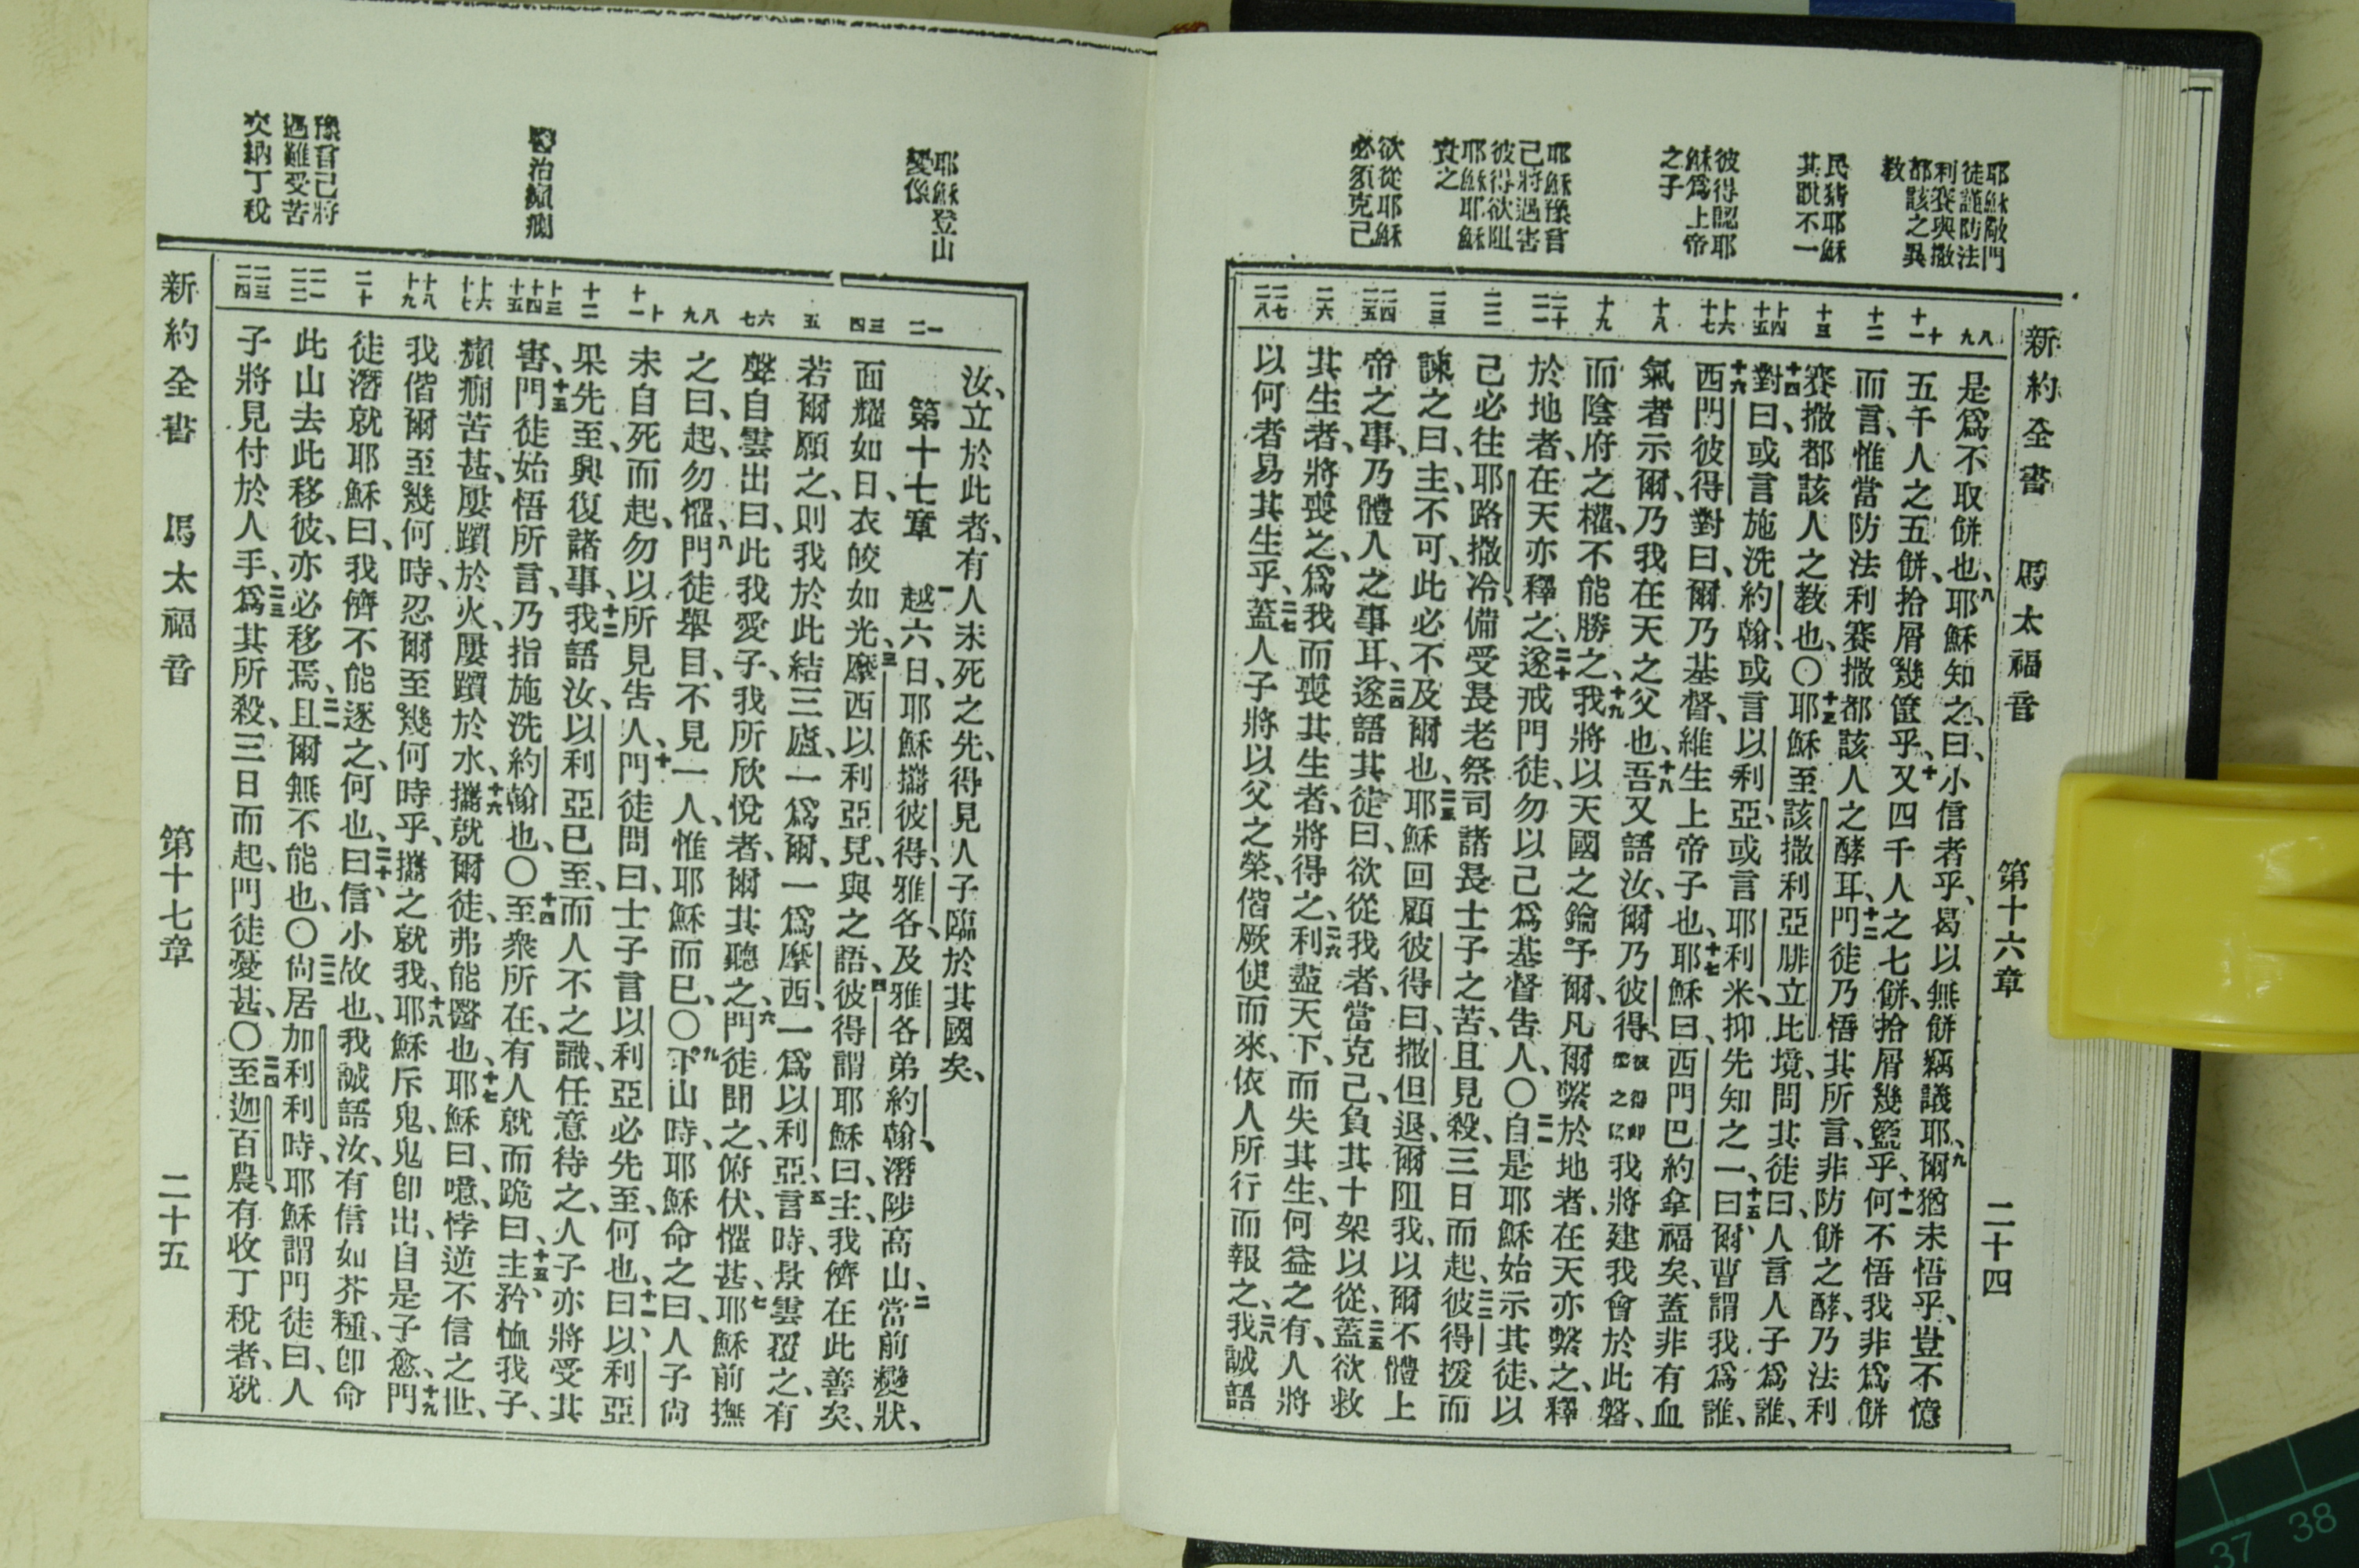 新約全書 馬太福音 第十六章 二十四
耶穌敵門
徒謹防法
利賽與撒
都該之異
教
民猜耶穌
其說不一
彼得認耶
穌爲上帝
之子
耶穌豫言
己將遇害
彼得欲阻
耶穌耶穌
責之
欲從耶穌
必須克己
八
九
十
十一
十二
十三
十四
十五
十六
十七
十八
十九
二十
二一
二二
二三
二四
二五
二六
二七
二八
是爲不取餅也、八耶穌知之、曰、小信者乎、曷以無餅竊議耶、九爾猶未悟乎、豈不憶
五千人之五餅、拾屑幾筐乎、十又四千人之七餅、拾屑幾籃乎、十一何不悟我非爲餅
而言、惟當防法利賽撒都該人之酵耳、十二門徒乃悟其所言、非防餅之酵、乃法利
賽撒都該人之教也、〇十三耶穌至該撒利亞腓立比境、問其徒曰、人言人子爲誰、
十四對曰、或言施洗約翰、或言以利亞、或言耶利米、抑先知之一、十五曰、爾曹謂我爲誰、
十六西門彼得對曰、爾乃基督、維生上帝子也、十七耶穌曰、西門巴約拿福矣、蓋非有血
氣者示爾、乃我在天之父也、十八吾又語汝、爾乃彼得、彼得卽磐之意我將建我會於此磐、
而陰府之權、不能勝之、十九我將以天國之鑰予爾、凡爾縶於地者、在天亦縶之、釋
於地者、在天亦釋之、二十遂戒門徒、勿以己爲基督告人、〇二一自是耶穌始示其徒、以
己必往耶路撒冷、備受長老祭司諸長士子之苦、且見殺、三日而起、二二彼得援而
諫之曰、主、不可、此必不及爾也、二三耶穌回顧彼得曰、撒但退、爾阻我、以爾不體上
帝之事、乃體人之事耳、二四遂語其徒曰、欲從我者、當克己、負其十架以從、二五蓋欲救
其生者、將喪之、爲我而喪其生者、將得之、二六利盡天下、而失其生、何益之有、人將
以何者易其生乎、二七蓋人子將以父之榮、偕厥使而來、依人所行而報之、二八我誠語
耶穌登山
變像
醫治癲癇
豫言己將
遇難受苦
交納丁稅
一
二
三
四
五
六
七
八
九
十
十一
十二
十三
十四
十五
十六
十七
十八
十九
二十
二一
二二
二三
二四
汝、立於此者、有人未死之先、得見人子臨於其國矣、
第十七章 一越六日、耶穌攜彼得、雅各、及雅各弟約翰、潛陟高山、二當前變狀、
面耀如日、衣皎如光、三摩西以利亞見、與之語、四彼得謂耶穌曰、主、我儕在此善矣、
若爾願之、則我於此結三廬、一爲爾、一爲摩西、一爲以利亞、五言時、景雲覆之、有
聲自雲出曰、此我愛子、我所欣悅者、爾其聽之、六門徒聞之、俯伏、懼甚、七耶穌前撫
之曰、起、勿懼、八門徒舉目、不見一人、惟耶穌而已、〇九下山時、耶穌命之曰、人子尙
未自死而起、勿以所見告人、十門徒問曰、士子言以利亞必先至、何也、十一曰、以利亞
果先至、興復諸事、十二我語汝、以利亞已至、而人不之識、任意待之、人子亦將受其
害、十三門徒始悟所言、乃指施洗約翰也、〇十四至衆所在、有人就而跪曰、十五主、矜恤我子、
癲癇苦甚、屢躓於火、屢躓於水、十六攜就爾徒、弗能醫也、十七耶穌曰、噫、悖逆不信之世、
我偕爾至幾何時、忍爾至幾何時乎、攜之就我、十八耶穌斥鬼、鬼卽出、自是子愈、十九門
徒潛就耶穌曰、我儕不能逐之、何也、二十曰、信小故也、我誠語汝、有信如芥種、卽命
此山去此移彼、亦必移焉、二一且爾無不能也、〇二二尙居加利利時、耶穌謂門徒曰、人
子將見付於人手、二三爲其所殺、三日而起、門徒憂甚、〇二四至迦百農、有收丁稅者、就
新約全書 馬太福音 第十七章 二十五
37 38